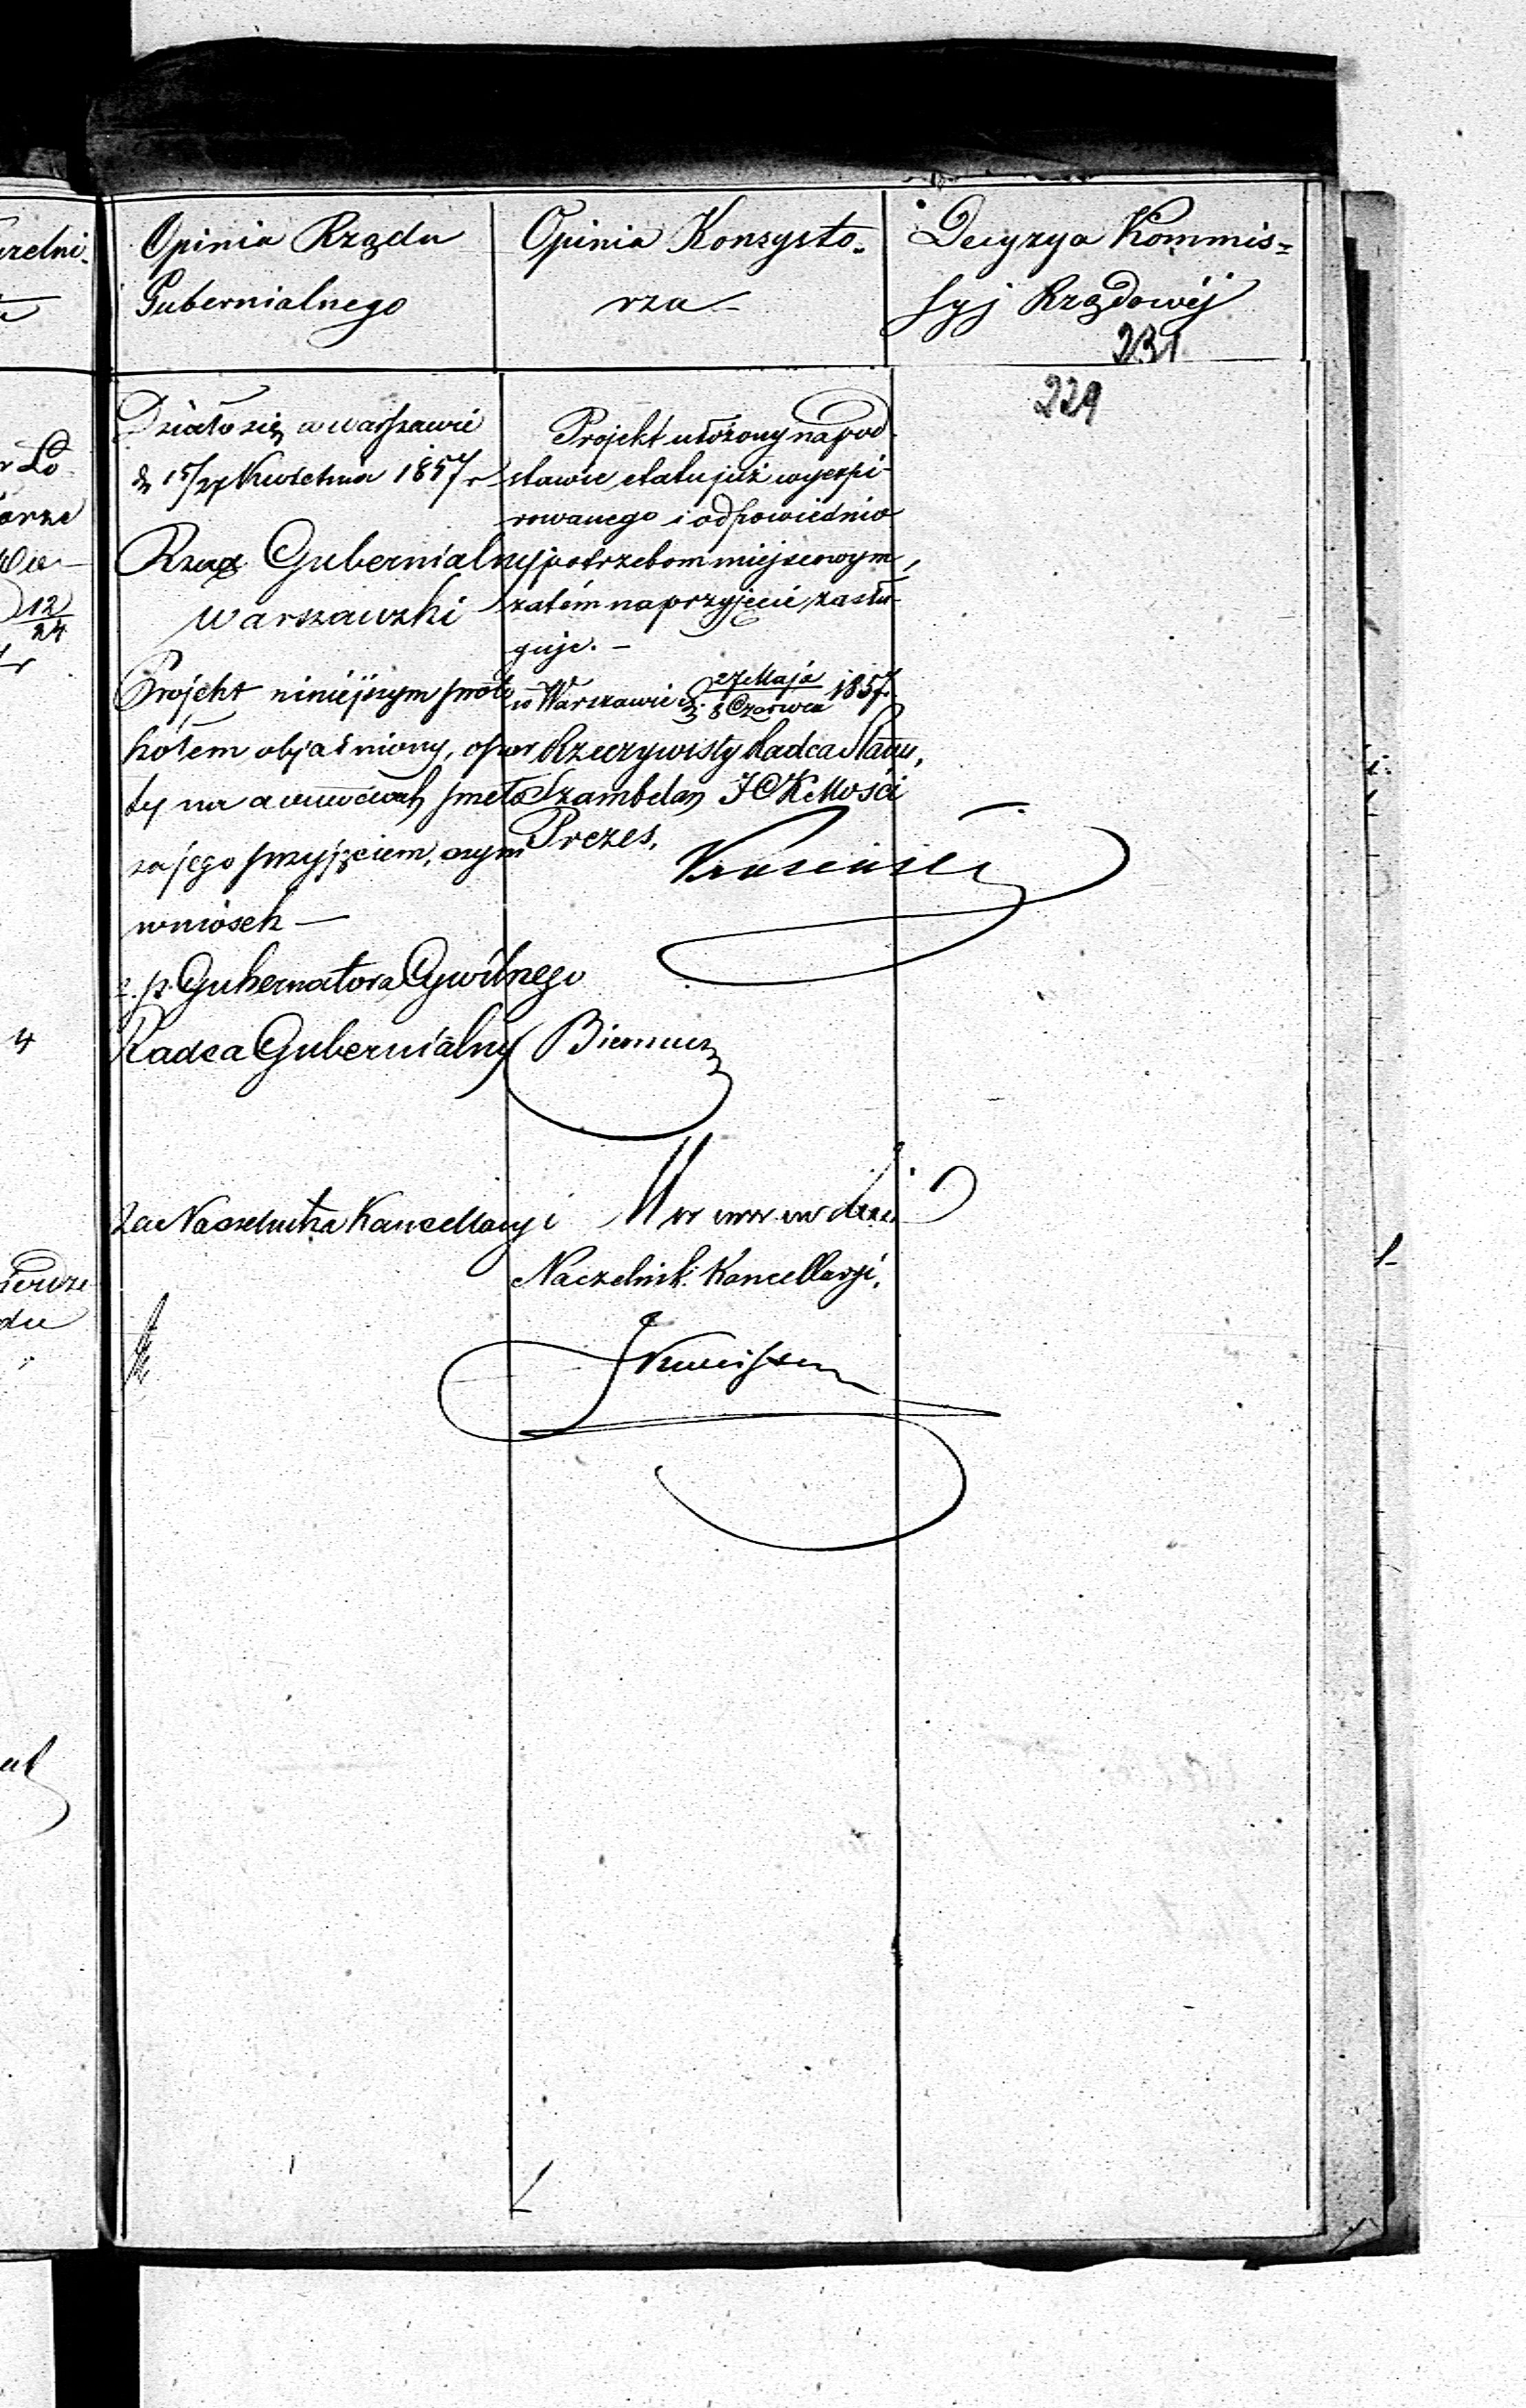 Opinia Rządu
Gubernialnego
Opinia Konsysto-
rza
Decyzya Kommis=
syj Rządowéj
231
229
Działo się w Warszawie
d. 15/27 Kwietnia 1857 r
Rząd Gubernialny
Warszawski
Projekt niniéjszym proto
kółem objaśniony, opar
ty na
za jego przyjęciem, czyni
wniosek —
z. p. Gubernatora Cywilnego
Radca Gubernialny
za Naczelnika Kancellaryi
Projekt ułożony na pod
stawie etatu już wyexpi-
rowanego i odpowiednio
potrzebom miejscowym,
zatém na przyjęcie zasłu
guje. —
w Warszawie d. 27 Maja / 8 Czerwca 1857.
Rzeczywisty Radca Stanu,
Szambelan JCK Mości
Prezes,
Krusenstern
Naczelnik Kancellaryi,
12
24
4